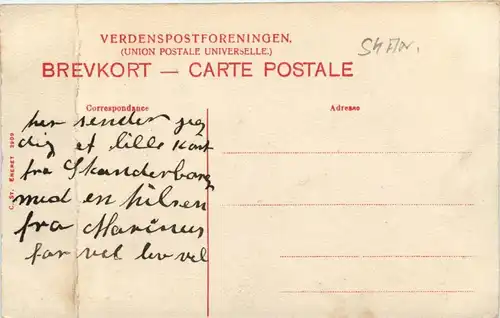 VERDENSPOSTFORENINGEN.
(UNION POSTALE UNIVERSELLE.)
BREVKORT — CARTE POSTALE
Correspondance
Adresse
her sender jeg
dig et lille kort
fra Skanderborg
med en hilsen
fra Marinus
far vel lev vel
C. St. ENERET